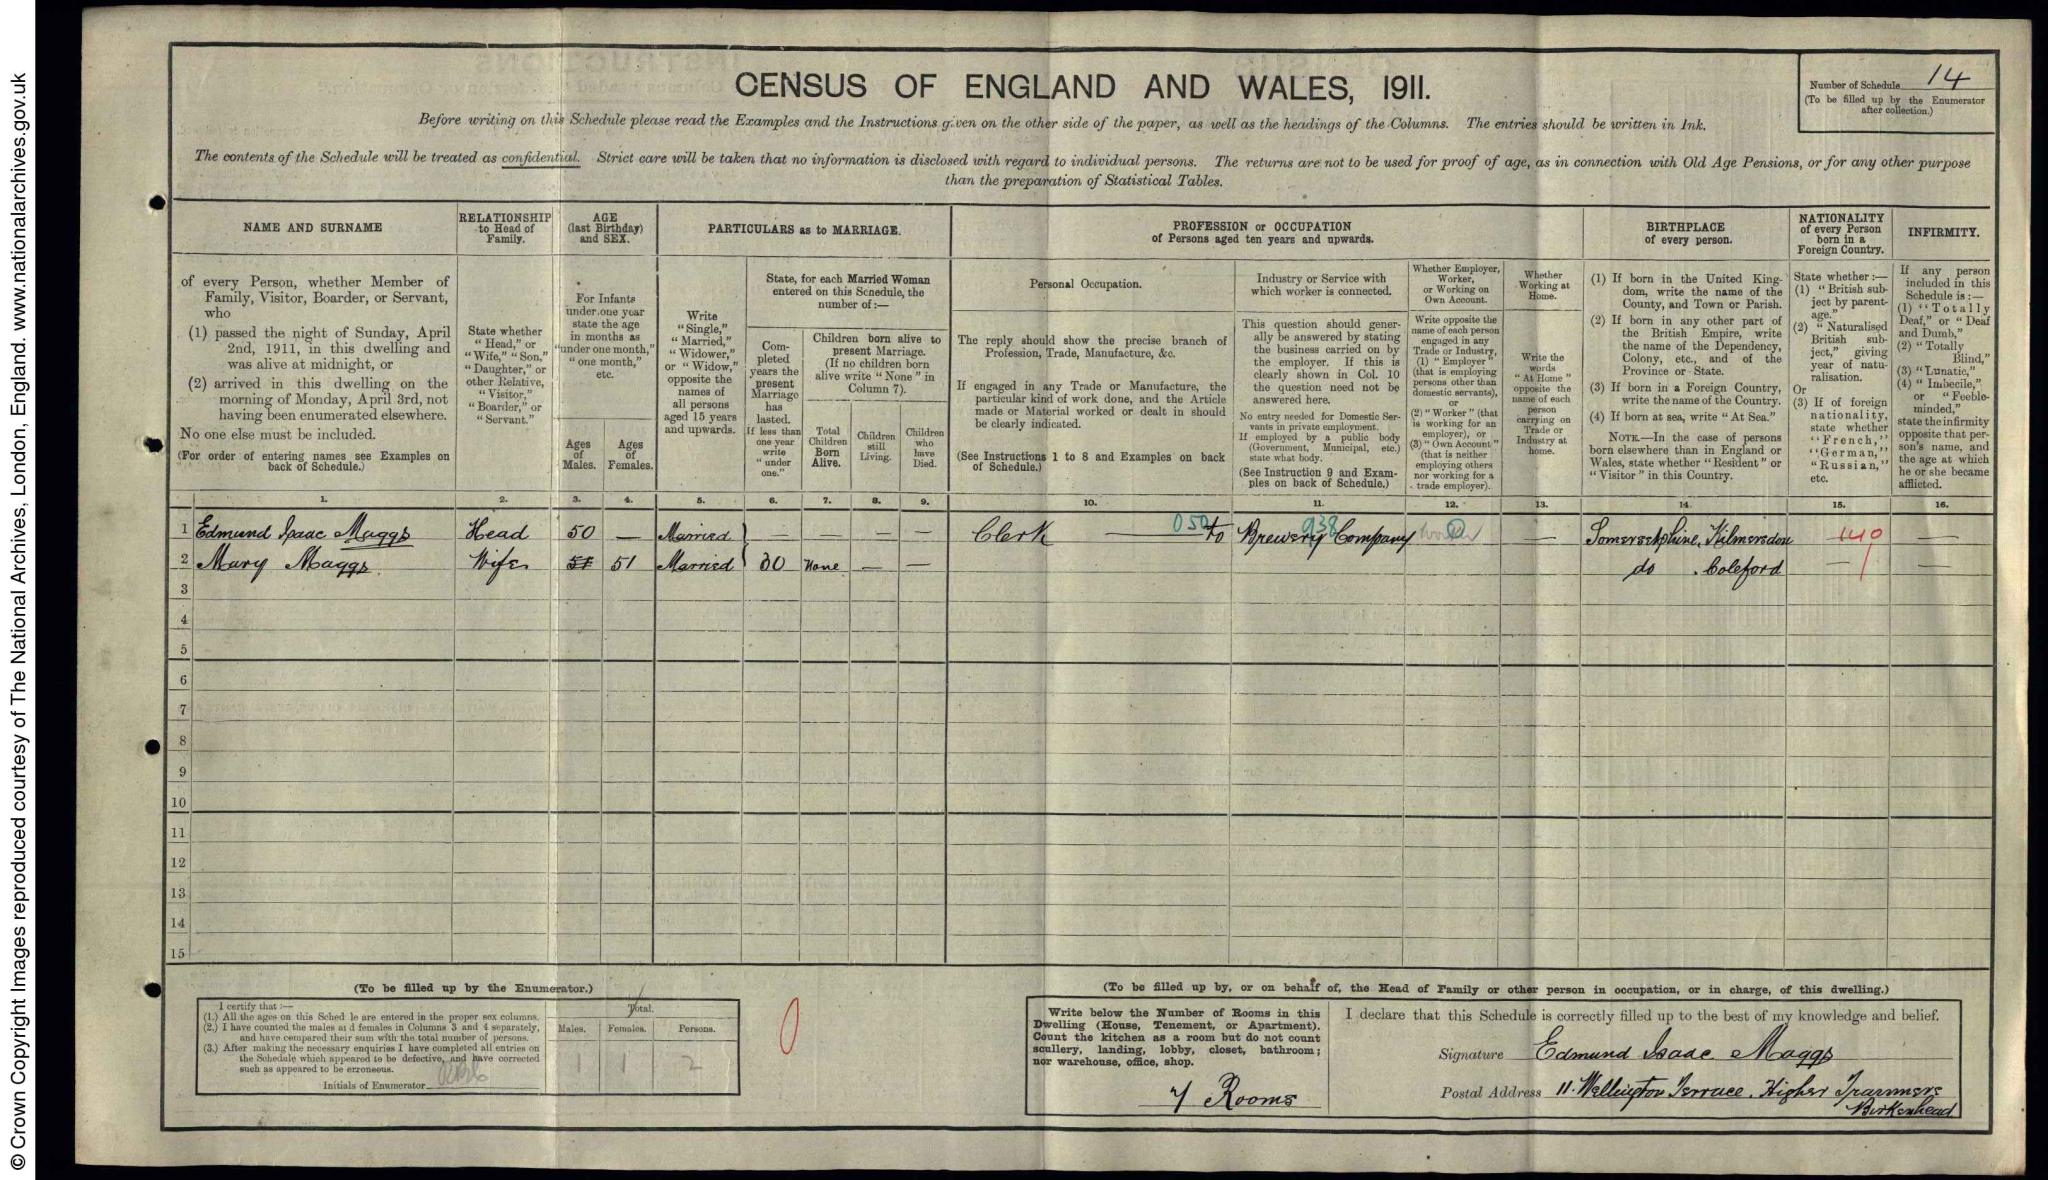 © Crown Copyright Images reproduced courtesy of The National Archives, London, England. www.nationalarchives.gov.uk
CENSUS OF ENGLAND AND WALES, 1911.
Number of Schedule 14
(To be filled up by the Enumerator after collection.)
Before writing on this Schedule please read the Examples and the Instructions given on the other side of the paper, as well as the headings of the Columns. The entries should be written in Ink.
The contents of the Schedule will be treated as confidential. Strict care will be taken that no information is disclosed with regard to individual persons. The returns are not to be used for proof of age, as in connection with Old Age Pensions, or for any other purpose
than the preparation of Statistical Tables.
NAME AND SURNAME
of every Person, whether Member of
Family, Visitor, Boarder, or Servant,
who
(1) passed the night of Sunday, April
2nd, 1911, in this dwelling and
was alive at midnight, or
(2) arrived in this dwelling on the
morning of Monday, April 3rd, not
having been enumerated elsewhere.
No one else must be included.
(For order of entering names see Examples on
back of Schedule.)
RELATIONSHIP
to Head of
Family.
State whether
"Head," or
"Wife," "Son,"
"Daughter," or
other Relative,
"Visitor,"
"Boarder," or
"Servant."
AGE
(last Birthday)
and SEX.
For Infants
under one year
state the age
in months as
"under one month,"
"one month,"
etc.
Ages
of
Males.
Ages
of
Females.
PARTICULARS as to MARRIAGE.
Write
"Single,"
"Married,"
"Widower,"
or "Widow,"
opposite the
names of
all persons
aged 15 years
and upwards.
State, for each Married Woman
entered on this Schedule, the
number of:—
Com-
pleted
years the
present
Marriage
has
lasted.
If less than
one year
write
"under
one."
Children born alive to
present Marriage.
(If no children born
alive write "None" in
Column 7).
Total
Children
Born
Alive.
Children
still
Living.
Children
who
have
Died.
PROFESSION or OCCUPATION
of Persons aged ten years and upwards.
Personal Occupation.
The reply should show the precise branch of
Profession, Trade, Manufacture, &c.
If engaged in any Trade or Manufacture, the
particular kind of work done, and the Article
made or Material worked or dealt in should
be clearly indicated.
(See Instructions 1 to 8 and Examples on back
of Schedule.)
Industry or Service with
which worker is connected.
This question should gener-
ally be answered by stating
the business carried on by
the employer. If this is
clearly shown in Col. 10
the question need not be
answered here.
No entry needed for Domestic Ser-
vants in private employment.
If employed by a public body
(Government, Municipal, etc.)
state what body.
(See Instruction 9 and Exam-
ples on back of Schedule.)
Whether Employer,
Worker,
or Working on
Own Account.
Write opposite the
name of each person
engaged in any
Trade or Industry,
(1) "Employer"
(that is employing
persons other than
domestic servants),
or
(2) "Worker" (that
is working for an
employer), or
(3) "Own Account"
(that is neither
employing others
nor working for a
trade employer).
Whether
Working at
Home.
Write the
words
"At Home"
opposite the
name of each
person
carrying on
Trade or
Industry at
home.
BIRTHPLACE
of every person.
(1) If born in the United King-
dom, write the name of the
County, and Town or Parish.
(2) If born in any other part of
the British Empire, write
the name of the Dependency,
Colony, etc., and of the
Province or State.
(3) If born in a Foreign Country,
write the name of the Country.
(4) If born at sea, write "At Sea."
NOTE.—In the case of persons
born elsewhere than in England or
Wales, state whether "Resident" or
"Visitor" in this Country.
NATIONALITY
of every Person
born in a
Foreign Country.
State whether:—
(1) "British sub-
ject by parent-
age."
(2) "Naturalised
British sub-
ject," giving
year of natu-
ralisation.
Or
(3) If of foreign
nationality,
state whether
"French,"
"German,"
"Russian,"
etc.
INFIRMITY.
If any person
included in this
Schedule is:—
(1) "Totally
Deaf," or "Deaf
and Dumb,"
(2) "Totally
Blind,"
(3) "Lunatic,"
(4) "Imbecile,"
or "Feeble-
minded,"
state the infirmity
opposite that per-
son's name, and
the age at which
he or she became
afflicted.
1. 2. 3. 4. 5. 6. 7. 8. 9. 10. 11. 12. 13. 14. 15. 16.
1 Edmund Isaac Maggs Head 50 — Married — — — — Clerk 050 to Brewery Company 938 — Somersetshire, Kilmersdon 140 —
2 Mary Maggs Wife 51 51 Married 30 None — — do. Coleford — —
3
4
5
6
7
8
9
10
11
12
13
14
15
(To be filled up by the Enumerator.)
I certify that:—
(1.) All the ages on this Sched le are entered in the proper sex columns.
(2.) I have counted the males a d females in Columns 3 and 4 separately,
and have compared their sum with the total number of persons.
(3.) After making the necessary enquiries I have completed all entries on
the Schedule which appeared to be defective, and have corrected
such as appeared to be erroneous.
Initials of Enumerator
Total.
Males. Females. Persons.
1 1 2
0
(To be filled up by, or on behalf of, the Head of Family or other person in occupation, or in charge, of this dwelling.)
Write below the Number of Rooms in this
Dwelling (House, Tenement, or Apartment).
Count the kitchen as a room but do not count
scullery, landing, lobby, closet, bathroom;
nor warehouse, office, shop.
7 Rooms
I declare that this Schedule is correctly filled up to the best of my knowledge and belief.
Signature Edmund Isaac Maggs
Postal Address 11. Wellington Terrace. Higher Tranmere
Birkenhead